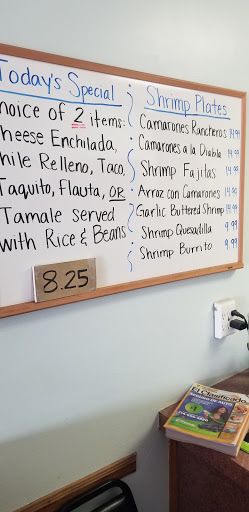 Today's Special
hoice of 2 items:
heese Enchilada,
hile Relleno, Taco,
Taquito, Flauta, OR
Tamale served
with Rice & Beans
8.25
Shrimp Plates
Camarones Rancheros 14.99
Camarones a la Diabla 14.99
Shrimp Fajitas 14.99
Arroz con Camarones 14.99
Garlic Buttered Shrimp 14.99
Shrimp Quesadilla 9.99
Shrimp Burrito 9.99
El Clasificado